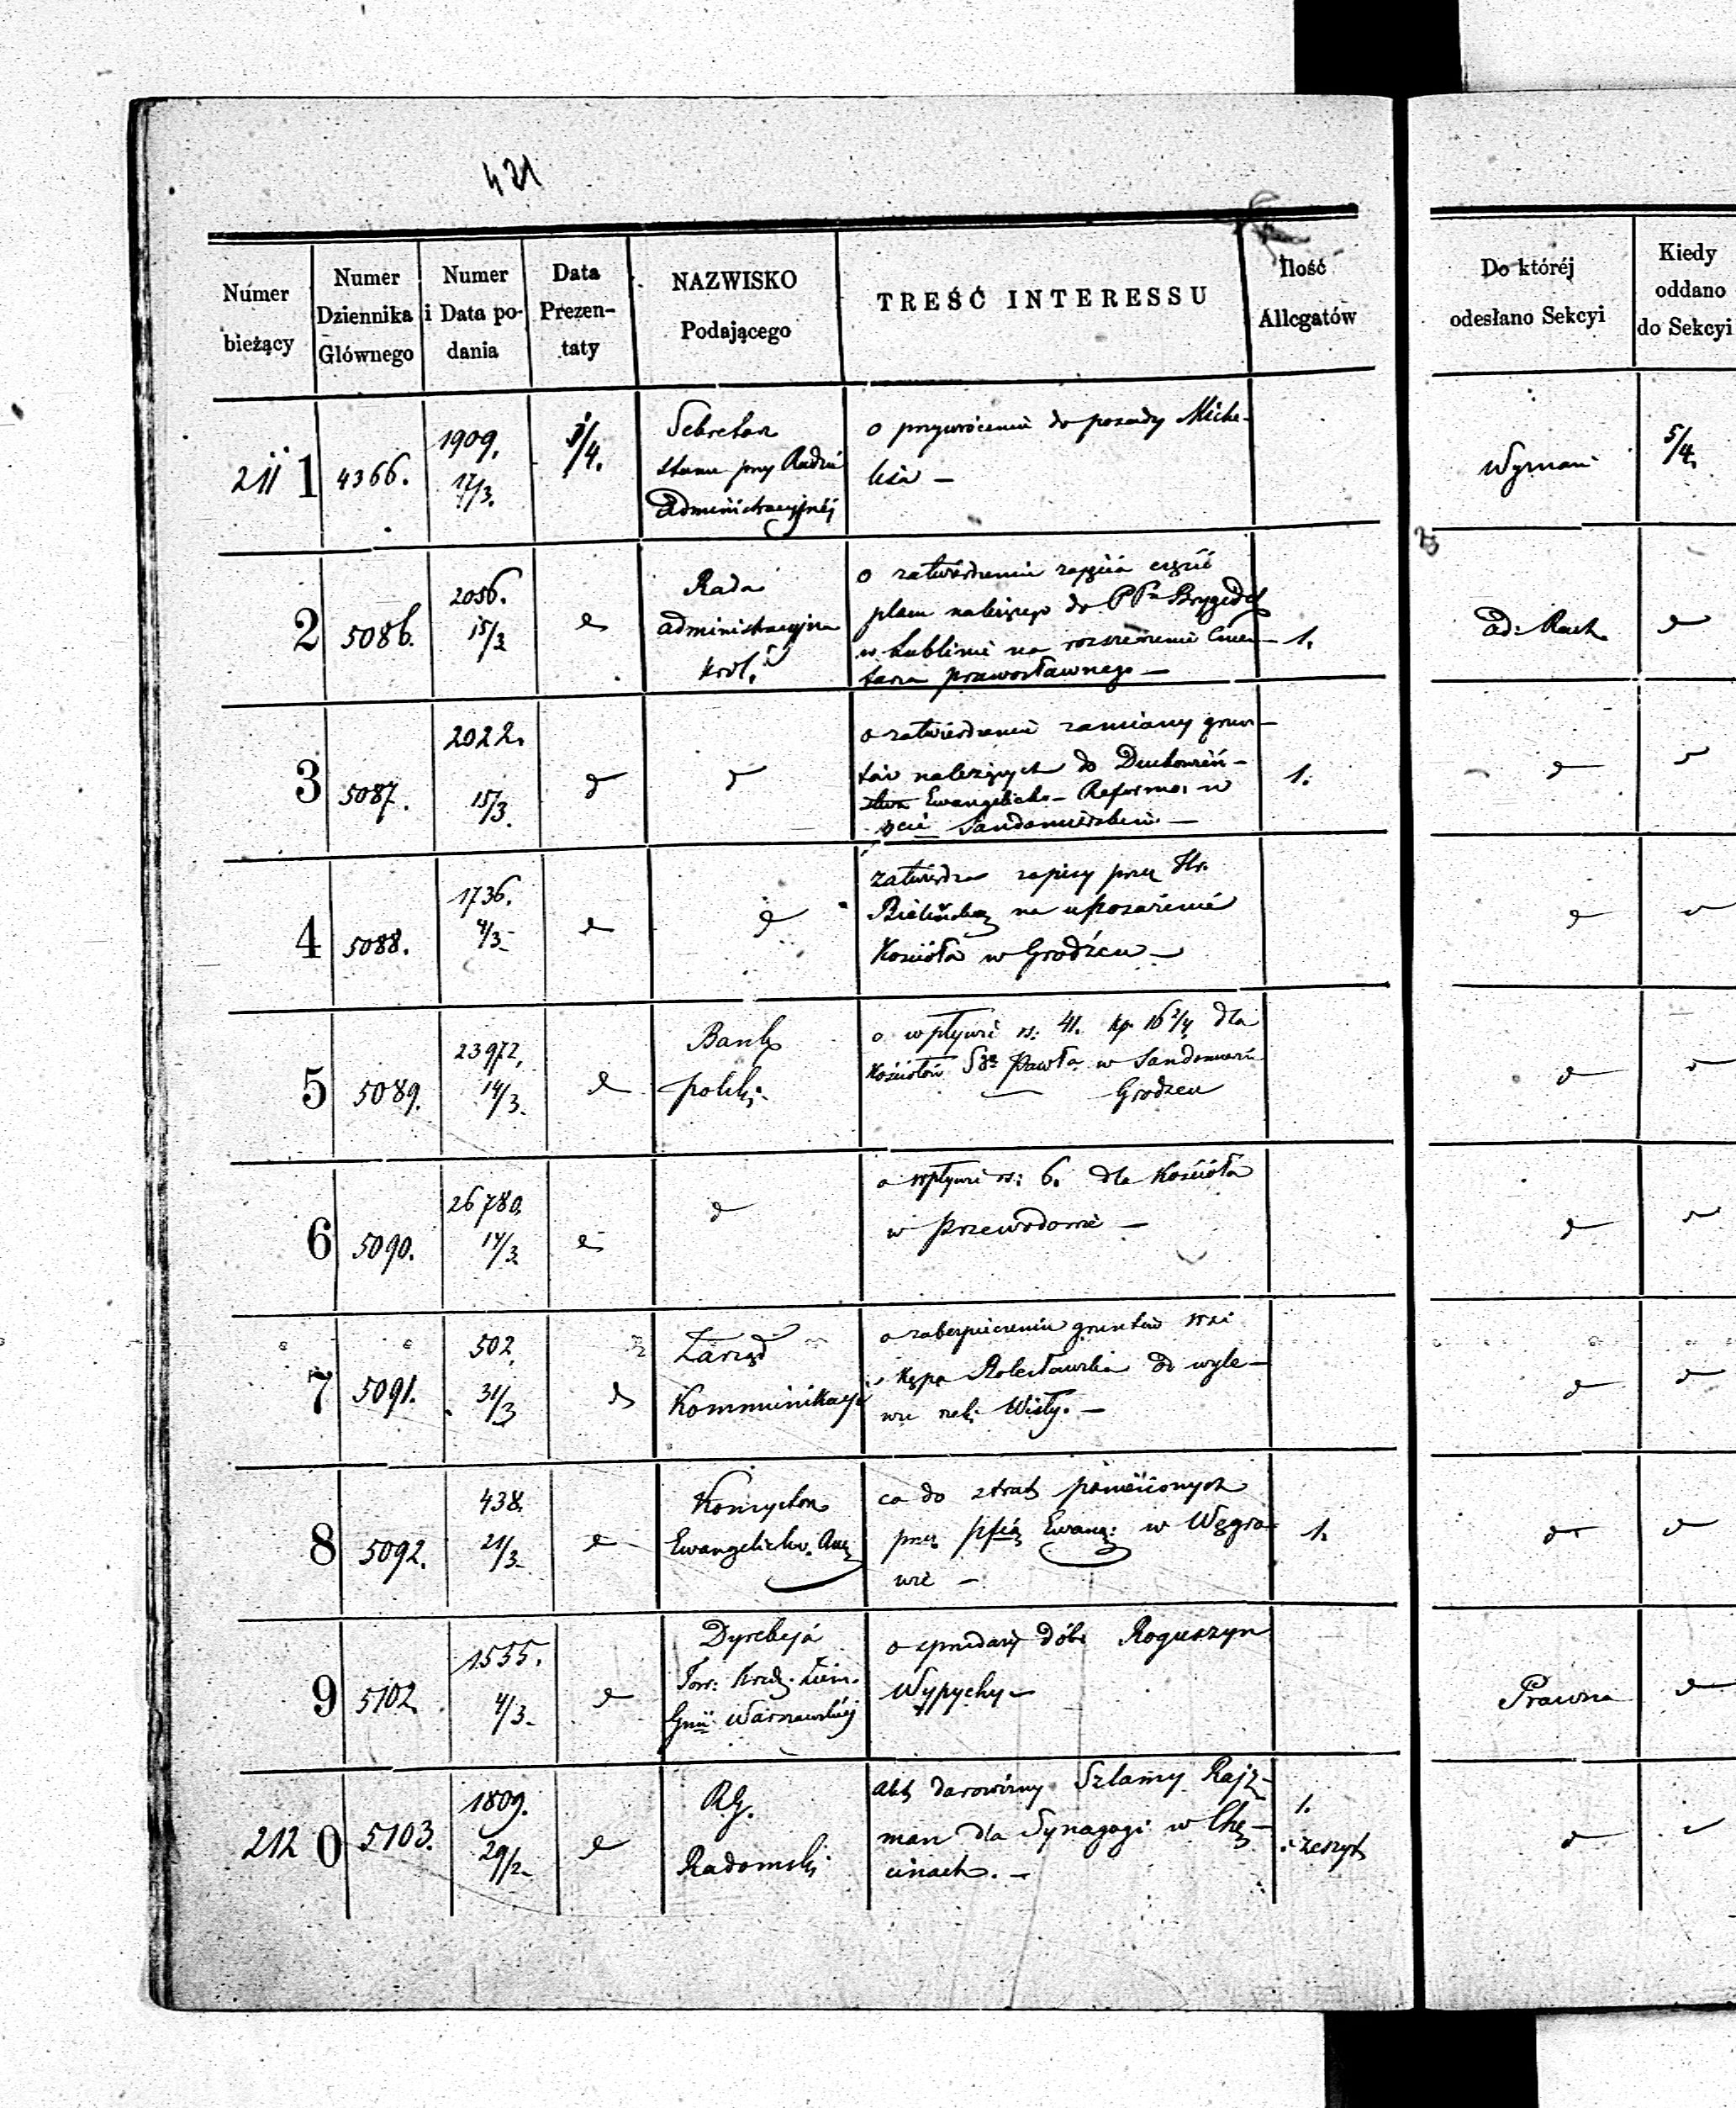 421
Numer bieżący
Numer Dziennika Głównego
Numer i Data podania
Data Prezentaty
NAZWISKO Podającego
TREŚĆ INTERESSU
Ilość Allegatów
Do któréj odesłano Sekcyi
Kiedy oddano do Sekcyi
2111
4366.
1909.
17/3.
/4.
Sekretarz
Stanu przy Radzie
Administracyjnéj
o przywrócenie do posady Miche-
lisa –
Wyznań
5/4.
2
5086.
2056.
15/3
d
Rada
administracyjna
Król.
o zatwierdzenie zajęcia część
placu należącego do PPn Brygidek
w Lublinie na rozszerzenie Cmen-
tarza prawosławnego –
1.
ad: Rach.
d
3
5087.
2022.
15/3.
d
d
o zatwierdzenie zamiany grun-
tów należących do Duchowień-
stwa Ewangelicko-Reformo: w
Sandomierskiem –
1.
d
d
4
5088.
1736.
4/3
d
d
zatwierdza zapisy przez Hr.
Bielińską na uposażenie
Kościoła w Grodźcu –
d
d
5
5089.
23972.
14/3.
d
Bank
polski
o wpływie rs: 41. kp. 16 2/4 dla
Kościołów Sgo Pawła w Sandomierzu
Grodzcu
d
d
6
5090.
26780.
14/3
d
d
o wpływie rs: 6. dla Kościoła
w Przewodowie –
d
d
7
5091.
502.
31/3
d
Zarząd
Kommunikacyi
o zabezpieczenie gruntów wsi
Kępa Bolesławska od wyle-
wu rzeki Wisły. –
d
d
8
5092.
438.
21/3.
d
Konsystorz
Ewangelicko. Aug
co do strat poniesionych
przez pfią Ewang: w Węgro-
wie –
1.
d
d
9
5102
1555.
4/3.
d
Dyrekcja
Tow: Kred. Ziem.
Gnii Warszawskiéj
o sprzedaży dóbr Roguszyn
Wypychy –
Prawna
d
2120
5103.
1809.
29/2.
d
RG.
Radomski
akt darowizny Szlamy Rajz-
man dla Synagogi w Chę-
cinach. –
1.
zeszyt
d
d